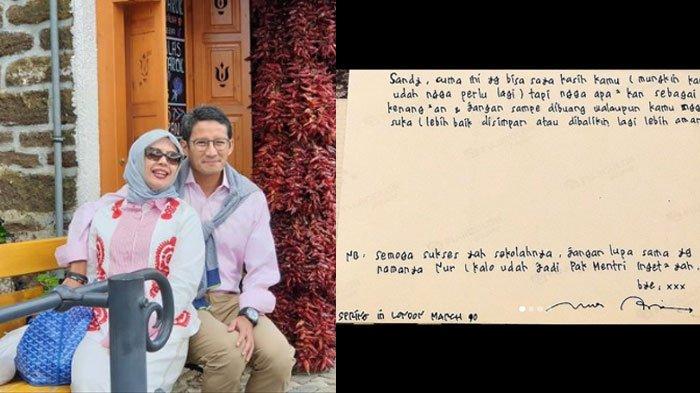 LAS
Sandi, cuma ini yg bisa saya kasih kamu (mungkin ka
udah ngga perlu lagi) tapi ngga apa² kan sebagai
kenang²an & jangan sampe dibuang walaupun kamu ngg
suka (lebih baik disimpan atau dibalikin lagi lebih aman
NB: semoga sukses yah sekolahnya, jangan lupa sama yg
namanya Nur (kalo udah jadi Pak Mentri inget² yah
bye, xxx
SPRING in LONDON MARCH 90